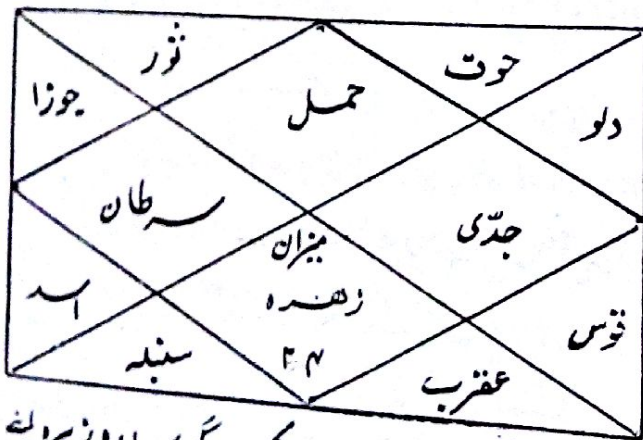 ثور
حوت
جوزا
حمل
دلو
سرطان
جدّی
میزان
زھرہ
۲۴
اسد
سنبلہ
عقرب
قوس